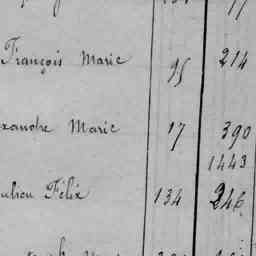 François Marie 95 214
xandre Marie 17 390
1443
ulien Félix 134 246